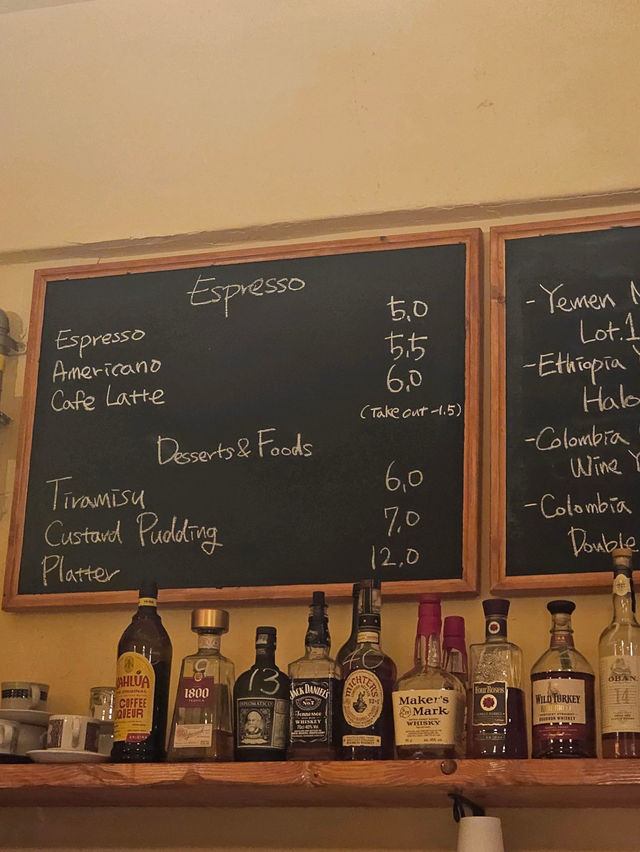 Espresso
Espresso 5.0
Americano 5.5
Cafe Latte 6.0
(Take out -1.5)
Desserts & Foods
Tiramisu 6.0
Custard Pudding 7.0
Platter 12.0
- Yemen
Lot.1
- Ethiopia
Halo
- Colombia
Wine Y
- Colombia
Double
KAHLÚA
COFFEE
LIQUEUR
9
1800
TEQUILA
13
DIPLOMÁTICO
JACK DANIEL'S
Old No.7
Tennessee
WHISKEY
10
MICHTER'S
Maker's
Mark
WHISKY
Four Roses
WILD TURKEY
BOURBON WHISKEY
OBAN
14